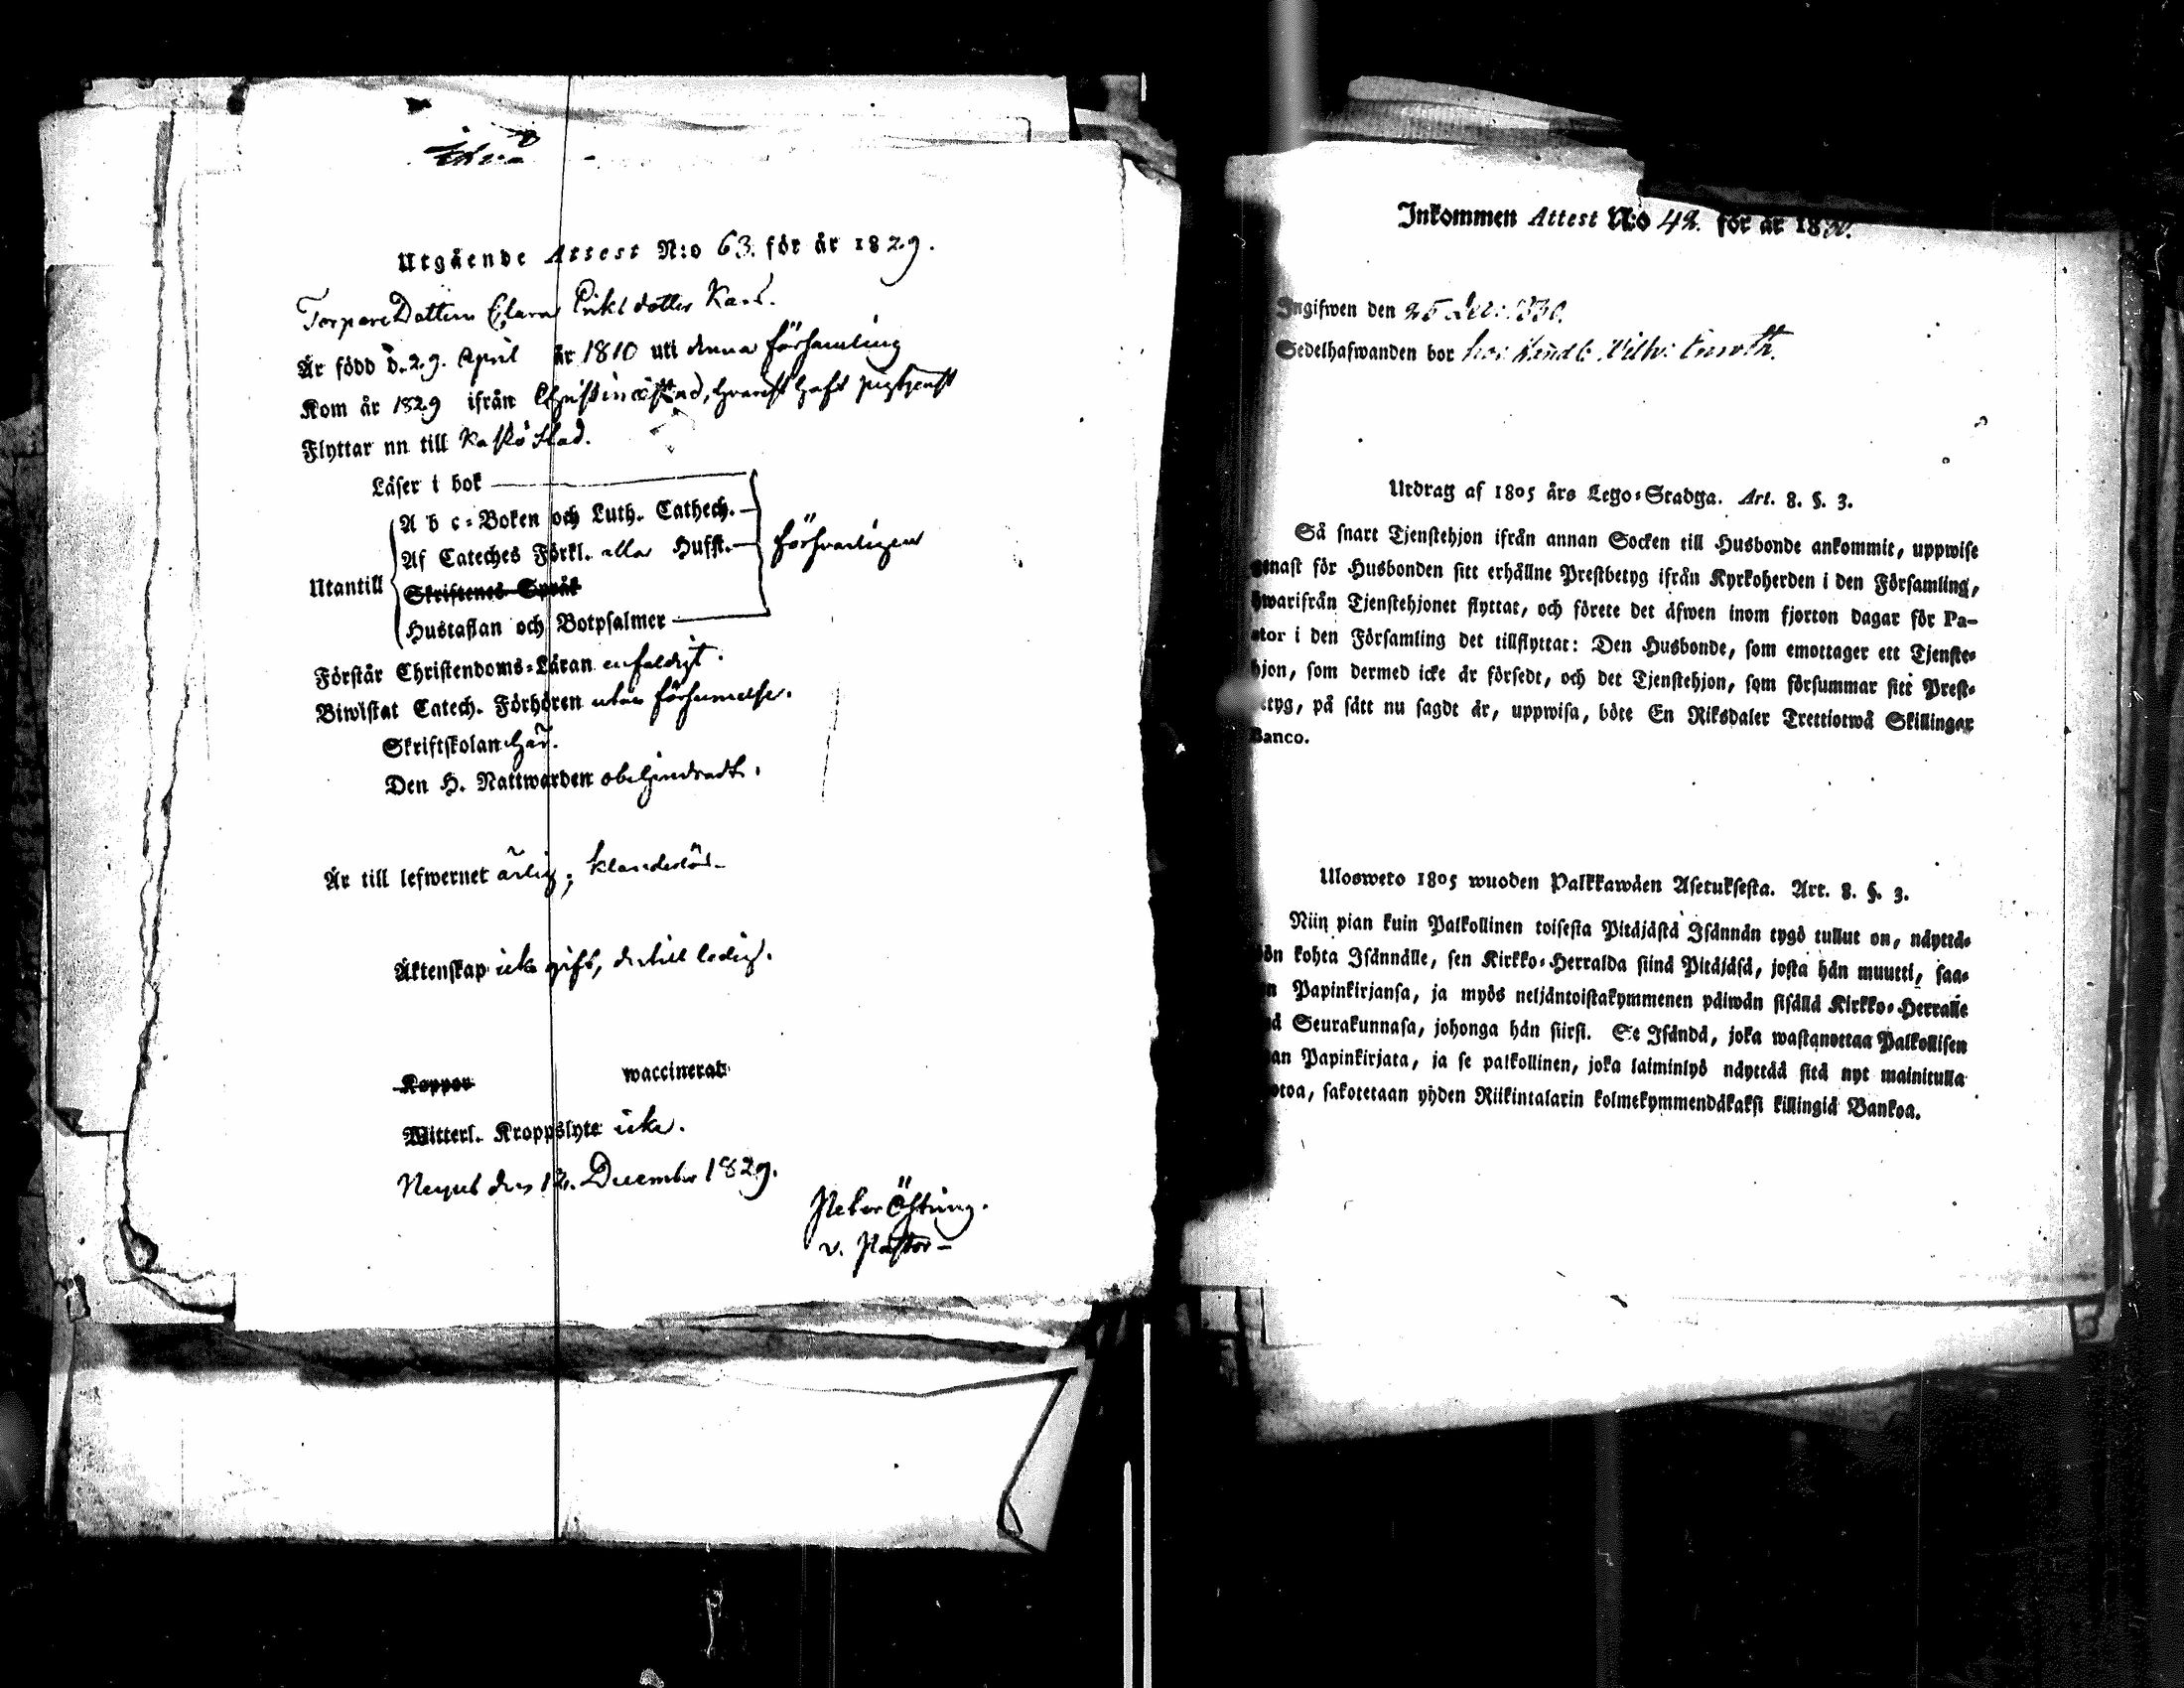 Utgående Attest N:o 63. för år 1829.
TorpareDottern Clara Eriksdotter Kars.
Är född d. 29. April år 1810 uti denna församling
Kom år 1829 ifrån Christinæstad, hvarest haft pigtjenst
Flyttar nn till Kaskö Stad.
Läser i bok
A b c-Boken och Luth. Cathech.
Af Cateches Förkl. alla Husst. försvarligen
Utantill
Skriftenes Språk
Hustaflan och Botpsalmer
Förstår Christendoms-Läran enfaldigt.
Biwistat Catech. Förhören utan försumelse.
Skriftskolan här.
Den H. Nattwarden obehindradt.
Är till lefwernet ärlig, klanderlös
Äktenskap icke gift, dertill ledig.
Koppor waccinerat
Witterl. Kroppslyte icke.
den 12. December 1829.
Peter
v. Pastor
Inkommen Attest N:o 42. för år 1830.
Ingifwen den 25 1830.
Sedelhafwanden bor hos Wilh:
Utdrag af 1805 års Lego-Stadga. Art. 8. §. 3.
Så snart Tjenstehjon ifrån annan Socken till Husbonde ankommit, uppwise
genast för Husbonden sitt erhållne Prestbetyg ifrån Kyrkoherden i den Församling,
hwarifrån Tjenstehjonet flyttat, och förete det äfwen inom fjorton dagar för Pa-
stor i den Församling det tillflyttat: Den Husbonde, som emottager ett Tjenste-
hjon, som dermed icke är försedt, och det Tjenstehjon, som försummar sitt Prest-
betyg, på sätt nu sagdt är, uppwisa, böte En Riksdaler Trettiotwå Skillingar
Banco.
Ulosweto 1805 wuoden Palkkawäen Asetuksesta. Art. 8. §. 3.
Niin pian kuin Palkollinen toisesta Pitäjästä Isännän tygö tullut on, näyttä-
kön kohta Isännälle, sen Kirkko-Herralda siinä Pitäjäsä, josta hän muutti, saa-
un Papinkirjansa, ja myös neljäntoistakymmenen päiwän sisällä Kirkko-Herralle
siinä Seurakunnasa, johonga hän siirsi. Se Isändä, joka wastanottaa Palkollisen
ilman Papinkirjata, ja se palkollinen, joka laiminlyö näyttää sitä nyt mainitulla
otoa, sakotetaan yhden Riikintalarin kolmekymmendäkaksi killingiä Bankoa.